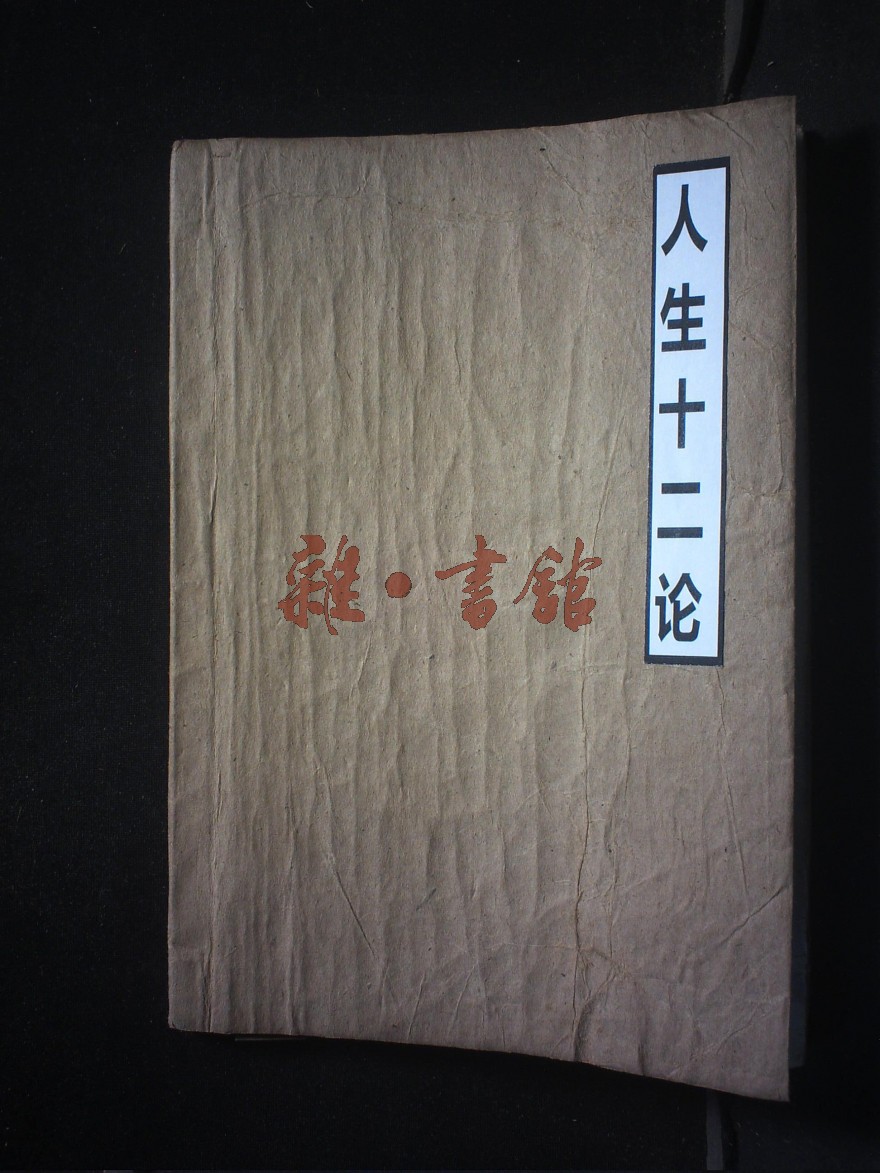 人生十二论
雜·書館